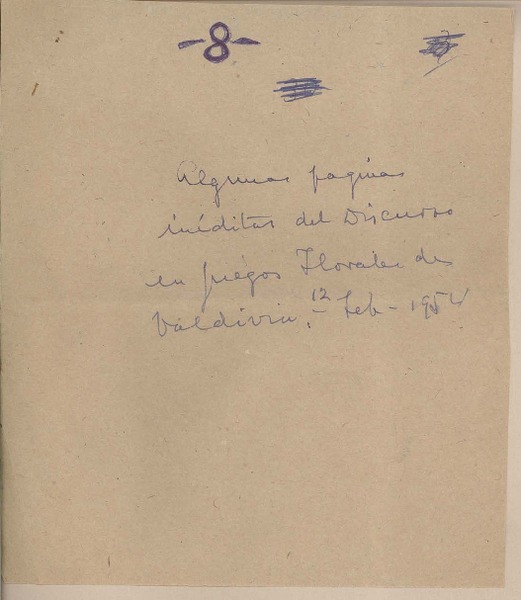 -8-
Algunas paginas
inéditas del Discurso
en juegos Florales de
Valdivia. 12 Feb - 1954